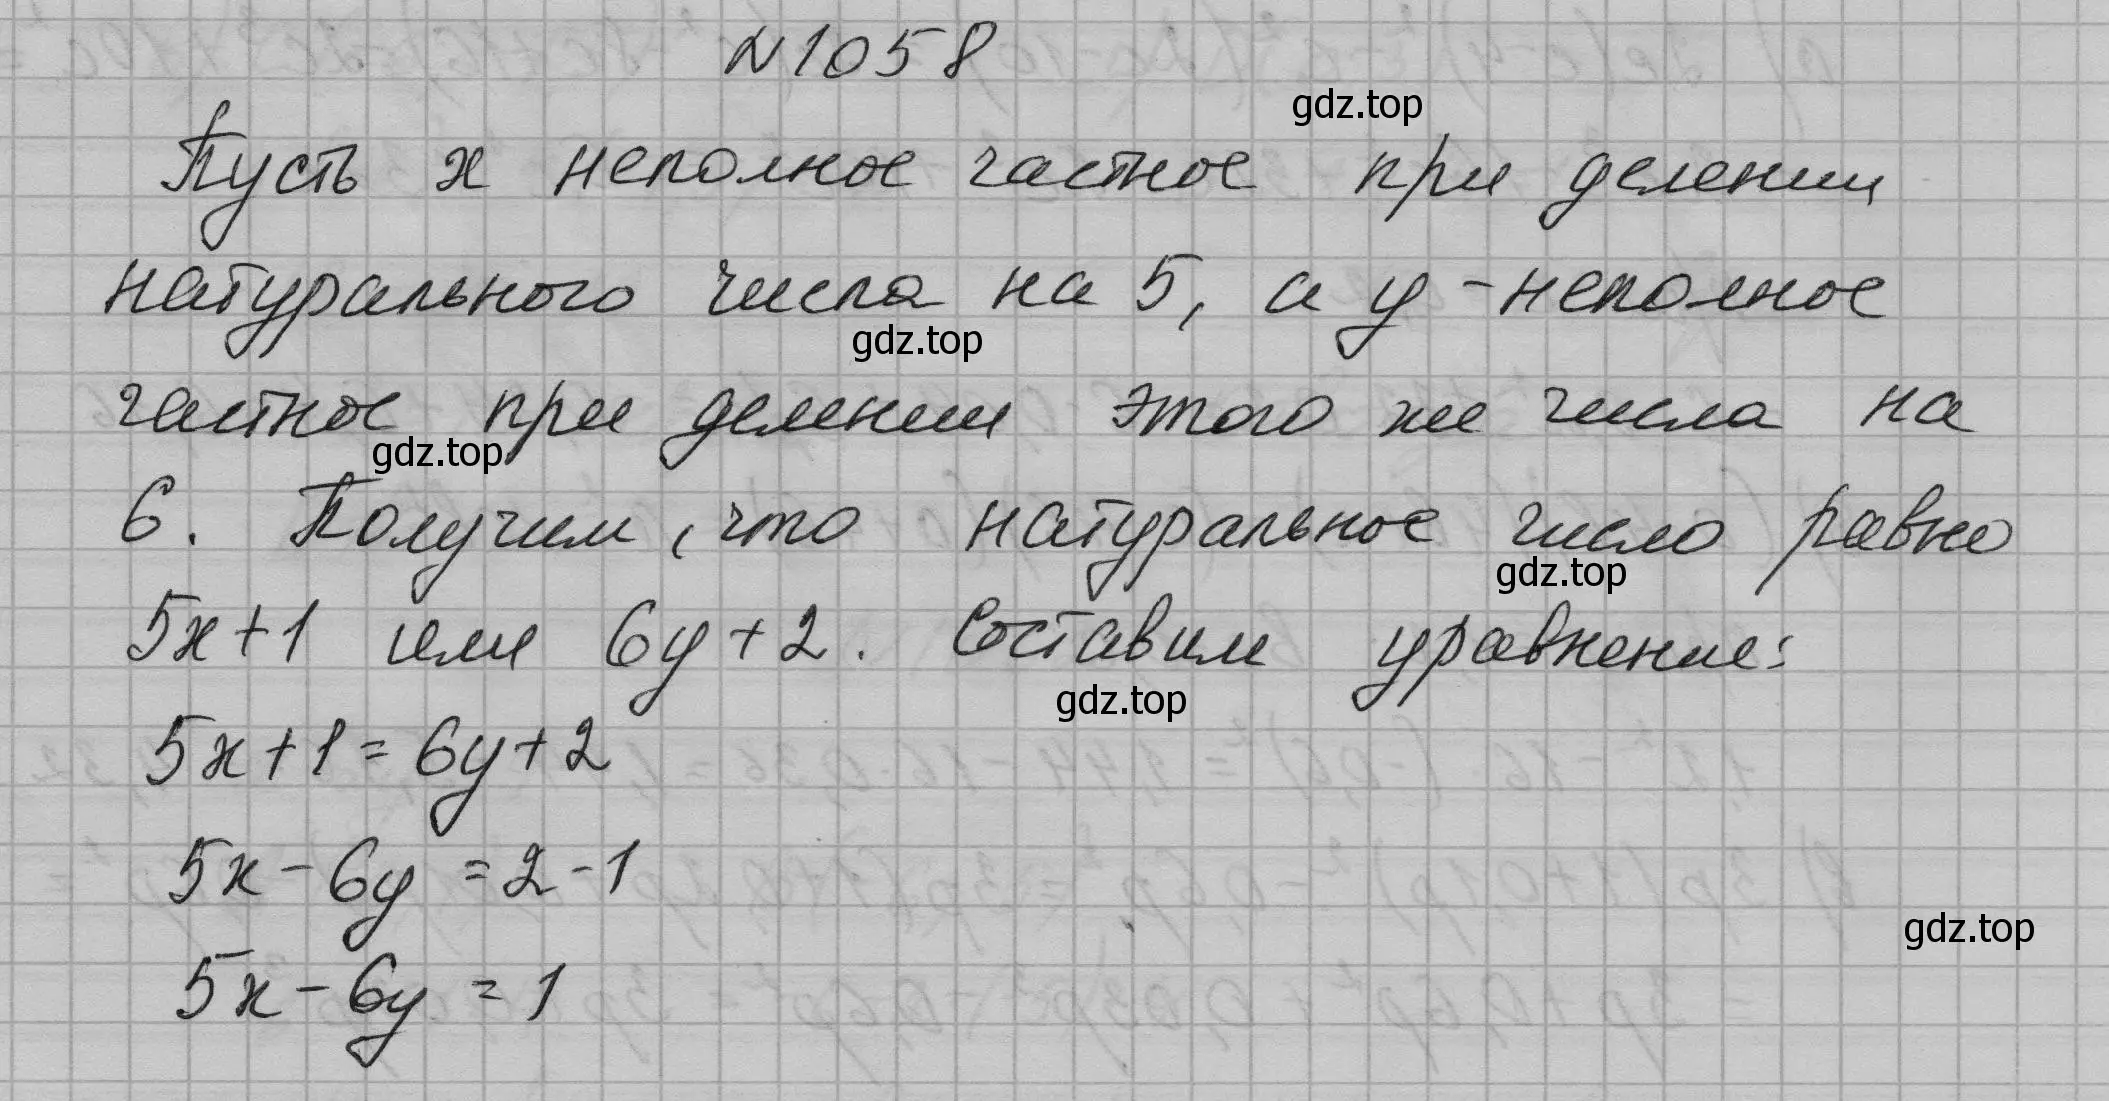 N1058
gdz.top
Пусть x неполное частное при делении
натурального числа на 5, а y - неполное
gdz.top
частное при делении этого же числа на
gdz.top
6. Получим, что натуральное число равно
gdz.top
5x+1 или 6y+2. Составим уравнение:
gdz.top
5x+1=6y+2
5x-6y=2-1
gdz.top
5x-6y=1